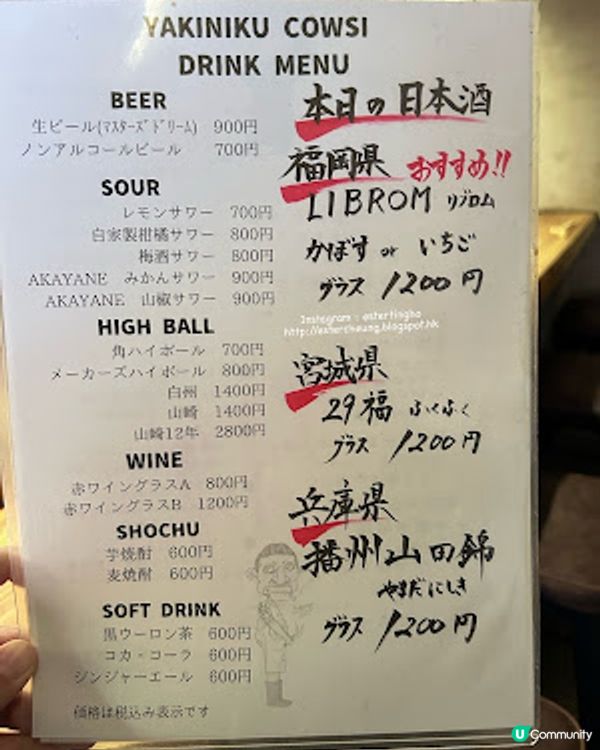 YAKINIKU COWSI
DRINK MENU
BEER
生ビール(ﾏｽﾀｰｽﾞﾄﾞﾘｰﾑ) 900円
ノンアルコールビール 700円
SOUR
レモンサワー 700円
自家製柑橘サワー 800円
梅酒サワー 800円
AKAYANE みかんサワー 900円
AKAYANE 山椒サワー 900円
HIGH BALL
角ハイボール 700円
メーカーズハイボール 800円
白州 1400円
山崎 1400円
山崎12年 2800円
WINE
赤ワイングラスA 800円
赤ワイングラスB 1200円
SHOCHU
芋焼酎 600円
麦焼酎 600円
SOFT DRINK
黒ウーロン茶 600円
コカ・コーラ 600円
ジンジャーエール 600円
価格は税込み表示です
本日の日本酒
福岡県 おすすめ!!
LIBROM リブロム
かぼす or いちご
グラス 1200円
Instagram : esthertingho
http://esthercheung.blogspot.hk
宮城県
29福 ふくふく
グラス 1200円
兵庫県
播州山田錦
やまだにしき
グラス 1200円
U Gommunity